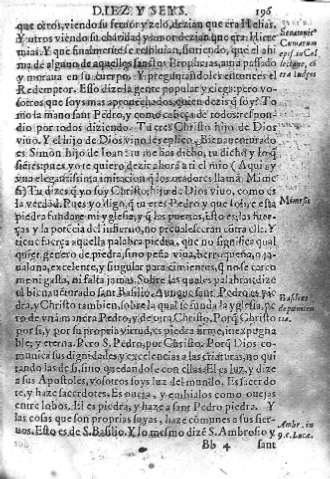 DIEZ Y SEYS. 196
que otros, viendo su feruor y zelo, dezian que era Helias.
Y otros viendo su charidad y amor dezian que era Hiere
mias. Y que finalmente se resoluian, diziendo, que el ahi
ma de alguno de aquellos sanctos Prophetas, auia passado
y moraua en su cuerpo. Y preguntandoles entonces el
Redemptor. Esso dize la gente popular y ciega: pero vo-
sotros que soys mas aprouechados, quien dezis q̃ soy? To
mo la mano sant Pedro, y como cabeça de todos respon-
dio por todos diziendo. Tu eres Christo hijo de Dios
viuo. Y el hijo de Dios viuo le replico, Bienauenturado
es Simon hijo de Ioan: tu me has dicho, tu dicho y lo q̃
siẽtes pues yo te quiero dezir ahora a ti el mio (Aqui ay
vna elegantissima imitacion q̃ los oradores llamã, Mime
sis) Tu dizes q̃ yo soy Christo hijo de Dios viuo, como es
la verdad. Pues yo digo, q̃ tu eres Pedro y que sobre esta
piedra fundare mi yglesia, y q̃ las puertas, esto es, las fuer-
ças y la potencia del infierno, no preualesceran cõtra ella. Y
tiene fuerça aquella palabra piedra, que no significa qual
quier genero de piedra, sino peña viua, berroqueña, o ja-
balana, excelente, y singular para cimientos, q̃ no se carco
me ni gasta, ni falta jamas. Sobre las quales palabras dize
el bienauenturado sant Basilio. Aunque sant Pedro es pie-
dra, y Christo tambien, sobre la qual se funda la yglesia, pe-
ro de vna manera Pedro, y de otra Christo. Porq̃ Christo
por si, y por su propria virtud, es piedra firme, inexpugna
ble, y eterna. Pero S. Pedro, por Christo. Porq̃ Dios co-
munica sus dignidades y excelencias a las criaturas, no qui
tando las de si, sino quedandose con ellas. El es luz, y dize
a sus Apostoles, vosotros soys luz del mundo. Es sacerdo
te, y haze sacerdotes. Es oueja, y embialos como ouejas
entre lobos. El es piedra, y haze a sant Pedro piedra. Y
las cosas que son proprias suyas, haze comunes a sus sier-
uos. Esto es de S. Basilio. Y lo mesmo dize S. Ambrosio y
Bb 4 sant
Mimesis
Basilius
de pœniten
tia.
Ambr. in
9. c. Lucæ.